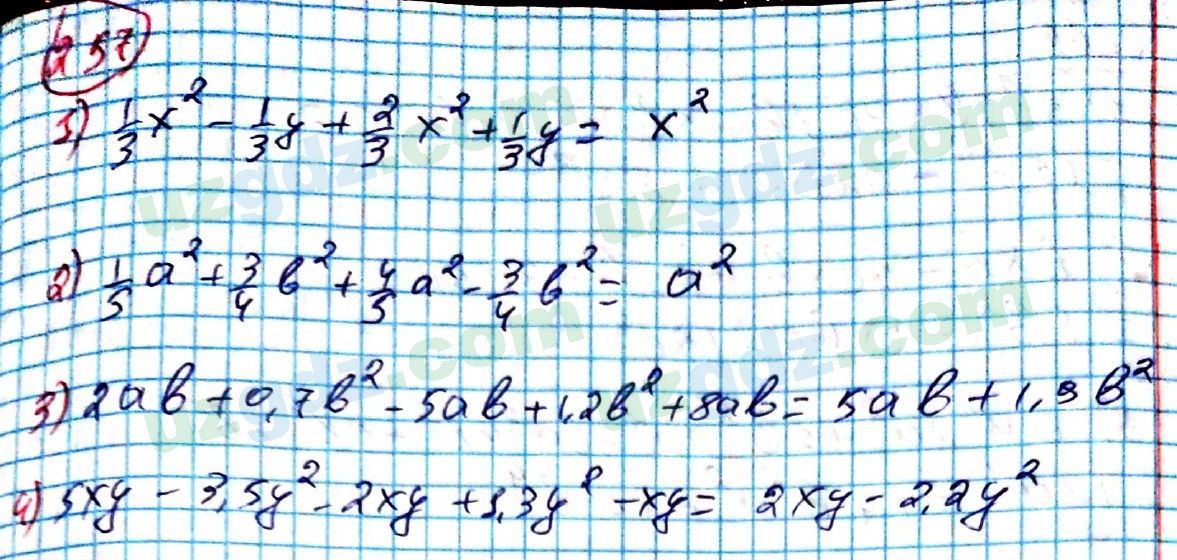 257
1) 1/3 x² - 1/3 y + 2/3 x² + 1/3 y = x²
2) 1/5 a² + 3/4 b² + 4/5 a² - 3/4 b² = a²
3) 2ab + 0,7b² - 5ab + 1,2b² + 8ab = 5ab + 1,9b²
4) 5xy - 3,5y² - 2xy + 1,3y² - xy = 2xy - 2,2y²
uzgdz.com
uzgdz.com
uzgdz.com
uzgdz.com